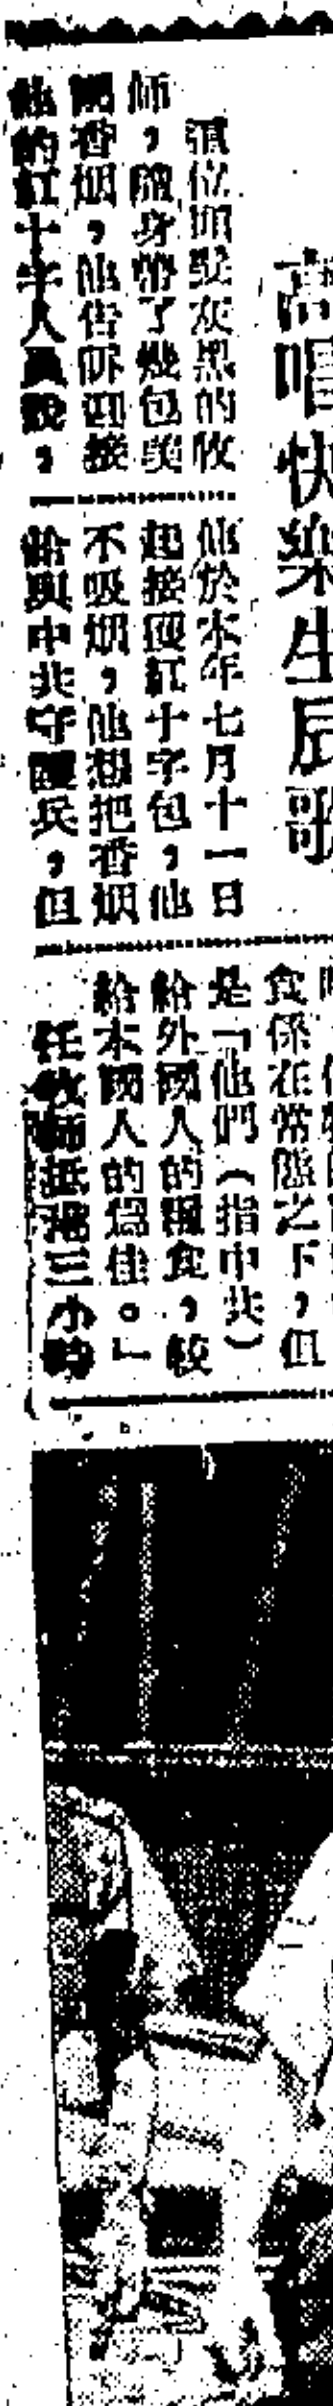 高唱快樂生辰歌
這位頭髮灰黑的牧
師，隨身帶了幾包美
國香烟，他告訴迎接
他的紅十字人員說，
他於本年七月十一日
起接獲紅十字包，他
不吸烟，他想把香烟
給與中共守護兵，但
食係在常態之下，但
是「他們（指中共）
給外國人的糧食，較
給本國人的爲佳。」
任牧師抵港三小時